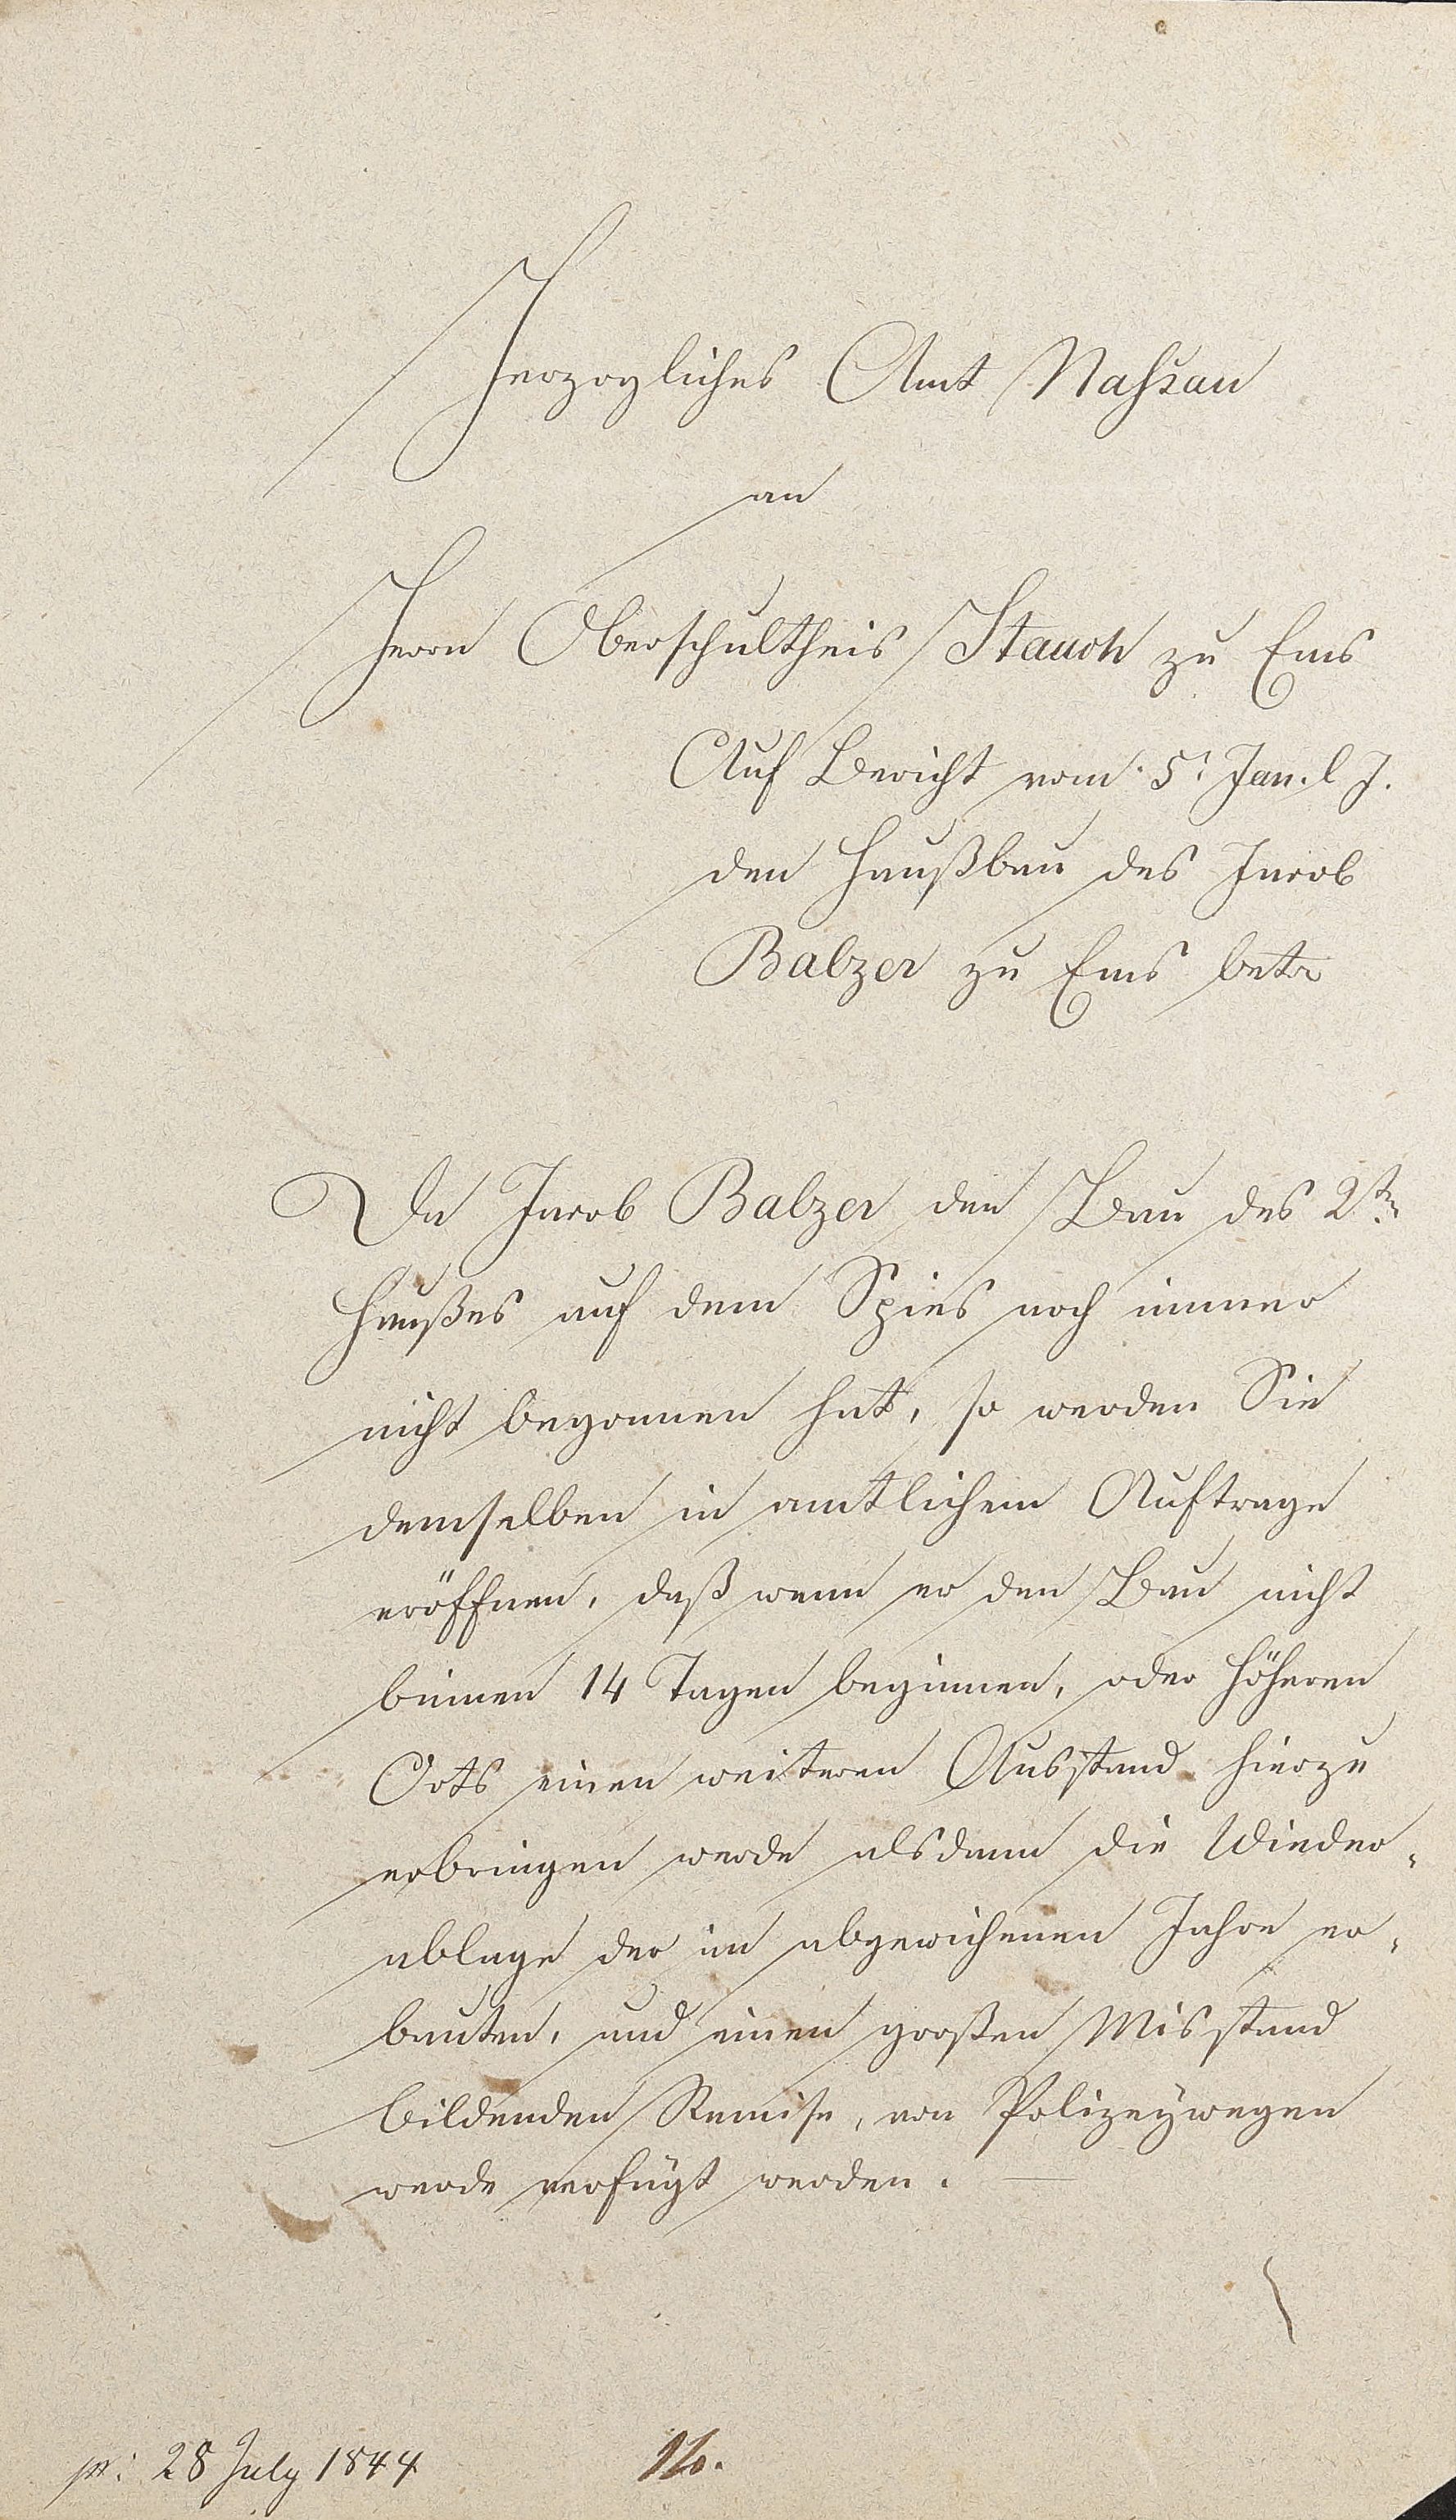 Herzogliches Amt Nassau
an
Herrn Oberschultheis Stauch zu Ems
Auf Bericht vom 5t Jan. l J.
den Haußbau des Jacob
Balzer zu Ems betr
Da Jacob Balzer den Bau des 2ten
Haußes auf dem Spies noch immer
nicht begonnen hat, so werden Sie
demselben in amtlichem Auftrage
eröffnen, daß wenn er den Bau nicht
binnen 14 Tagen beginnen, oder höheren
Orts einen weiteren Ausstand hierzu
erbringen werde alsdann die Wieder-
ablage der im abgewichenen Jahre er-
bauten, und einen großen Misstand
bildenden Remise, von Polizeywegen
werde verfügt werden.
pr: 28 July 1844
16.